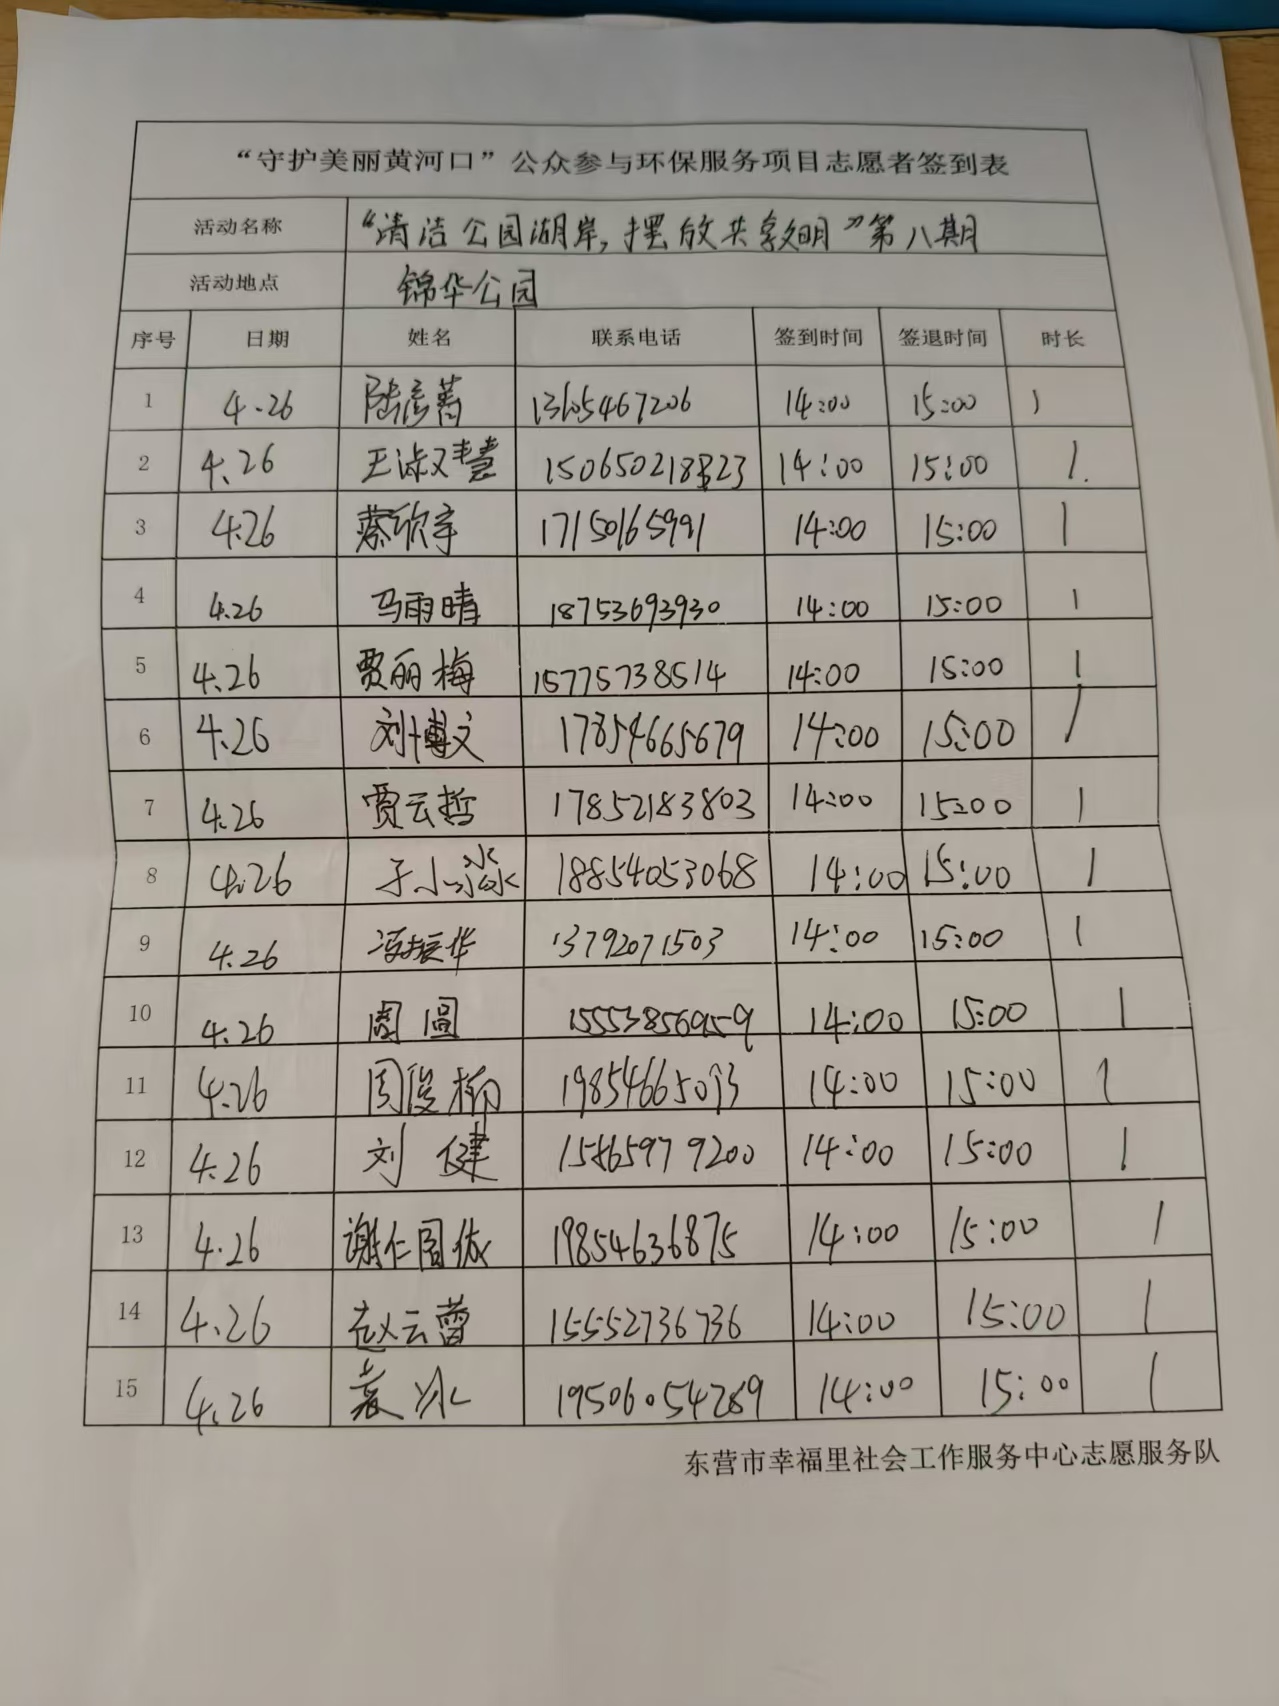 “守护美丽黄河口”公众参与环保服务项目志愿者签到表
活动名称 “清洁公园湖岸,摆放共享文明”第八期
活动地点 锦华公园
序号 日期 姓名 联系电话 签到时间 签退时间 时长
1 4.26 陆彦菁 13605467206 14:00 15:00 1
2 4.26 王淑慧 14:00 15:00 1
3 4.26 蔡欣宇 17150165991 14:00 15:00 1
4 4.26 马雨晴 18753693930 14:00 15:00 1
5 4.26 贾丽梅 15775738514 14:00 15:00 1
6 4.26 刘博文 17854665679 14:00 15:00 1
7 4.26 贾云哲 17852183803 14:00 15:00 1
8 4.26 于小淼 18854053068 14:00 15:00 1
9 4.26 冯振华 13792071503 14:00 15:00 1
10 4.26 周圆 14:00 15:00 1
11 4.26 周俊柳 19854665093 14:00 15:00 1
12 4.26 刘健 15865979200 14:00 15:00 1
13 4.26 谢仁周依 19854636875 14:00 15:00 1
14 4.26 赵云蕾 15552736736 14:00 15:00 1
15 4.26 袁冰 19506054289 14:00 15:00 1
东营市幸福里社会工作服务中心志愿服务队